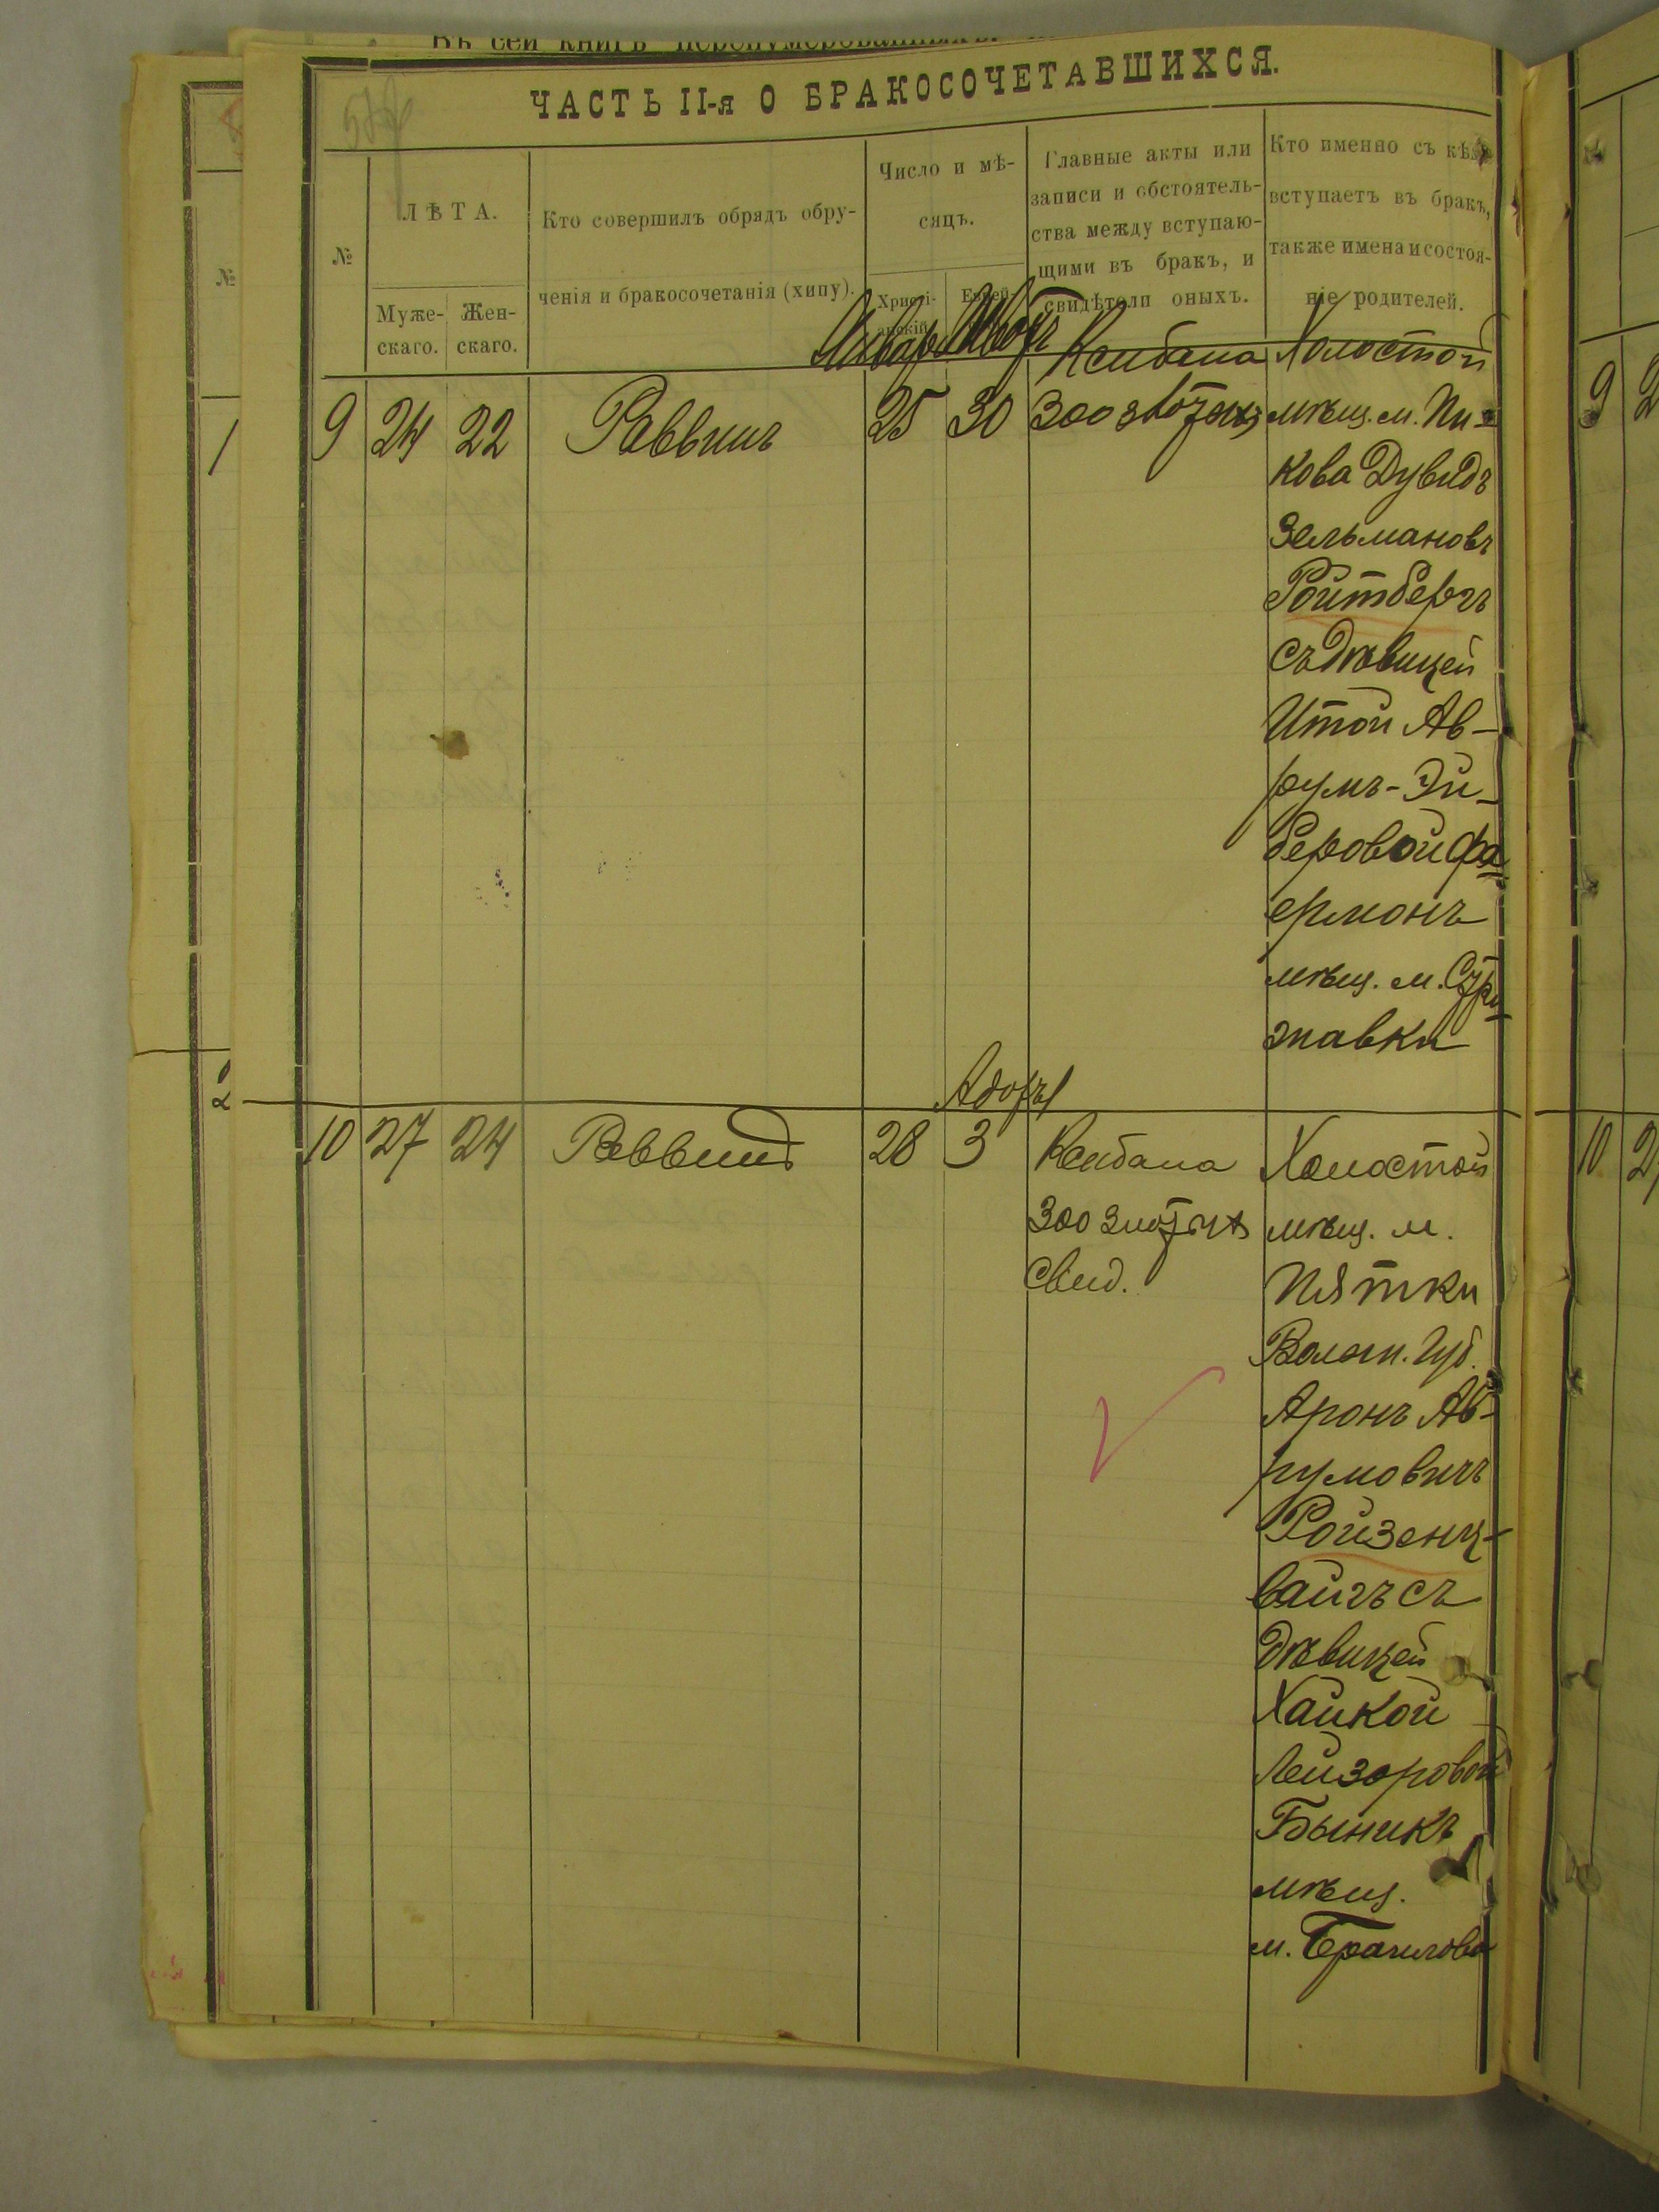 ЧАСТЬ II-я О БРАКОСОЧЕТАВШИХСЯ.
№
ЛѢТА.
Муже-
скаго.
Жен-
скаго.
Кто совершилъ обрядъ обру-
ченія и бракосочетанія (хипу).
Число и мѣ-
сяцъ.
Христі-
анскій
Еврей-
Главные акты или
записи и обстоятель-
ства между вступаю-
щими въ бракъ, и
свидѣтели оныхъ.
Кто именно съ кѣмъ
вступаетъ въ бракъ,
также имена и состоя-
ніе родителей.
№
Январь Шватъ
9 24 22 Раввинъ 25 30
Ксибана
300 злотыхъ
Холостой
мѣщ. м. Пи-
кова Дувидъ
Зельмановъ
Ройтбергъ
съ Дѣвицей
Итой Ав-
румъ-Эй-
беровой Фа
ермонъ
мѣщ. м. Стри
жавки
1
2
Адоръ
10 27 24 Раввинъ 28 3
Ксибана
300 злотыхъ
Свид.
Холостой
мѣщ. м.
Пятки
Волын. Губ.
Аронъ Ав-
румовичъ
Ройзенц-
вайгъ съ
Дѣвицей
Хайкой
Лейзоровой
Быникъ
мѣщ.
м. Браилова
9 2
10 2